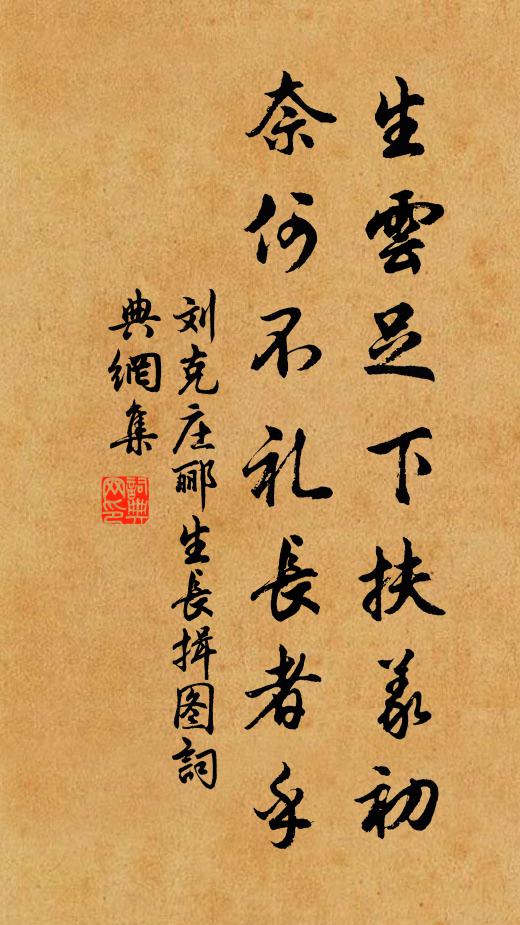 生雲足下扶義初
奈何不礼長者乎
刘克庄郦生長揖图詞
典網集
詞典
网印